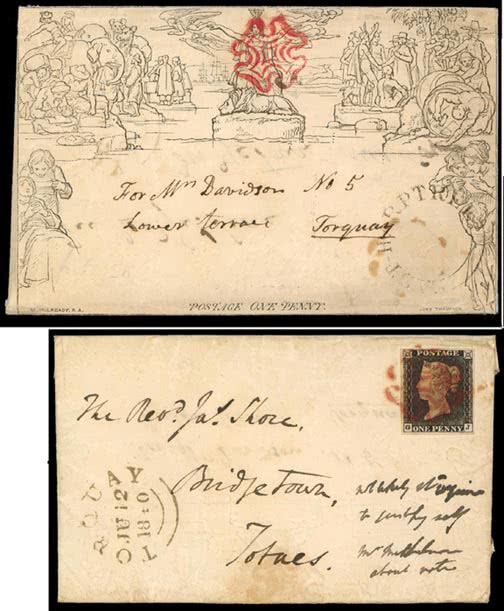 For Mrs Davidson No 5
Lower Terrace Torquay
W. MULREADY, R.A.
POSTAGE ONE PENNY.
JOHN THOMPSON
POSTAGE
ONE PENNY
The Revd. Jas. Shore,
Bridgetown,
Totnes.
TORQUAY
JU 12
1840
to justify self
about note